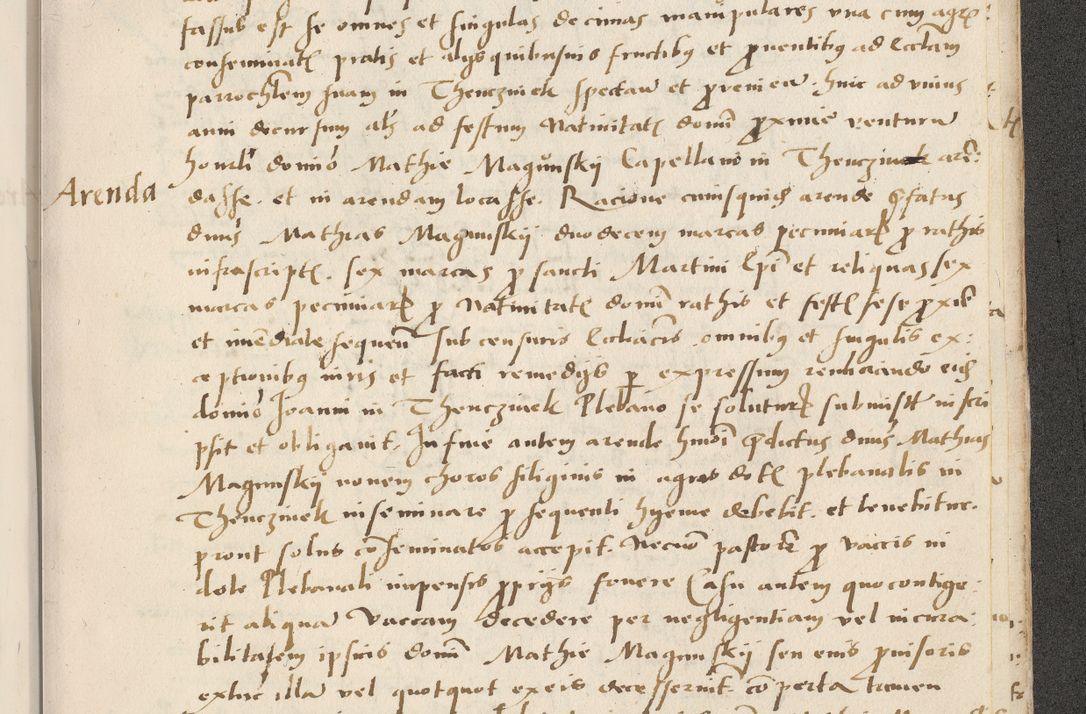 fassus est se omnes et singulas decimas manipulares vna cum agris
conseminatis pratis et alijs quibusuis fructibus et prouentibus ad Eccliam
parrochlem suam in Thenczinek spectan et prouenien hinc ad vnius
anni decursum als ad festum Natiuitatis domi proxime ventura
honrli domino Mathie Magunskij Capellano in Thenczinek aren:
dasse et in arendam locasse. Racione cuiusquid arende prefatus
Arenda
dnus Mathias Magunskij duodecem marcas pecuniar pro rathis
infrascriptis. sex marcas pro sancti Martini Epi et reliquas sex
marcas pecuniar pro Natiuitatis domi rathis et festis sese proxie
et imediate sequen sub censuris Ecclaicis omnibus et singulis ex:
ceptionibus iuris et facti remedijs per expressum renuciando eid
domino Joanni in Thenczinek Plebano se soluturum submisit inscri
psit et obligauit. In fine autem arende hmoi predictus dnus Mathias
Magunskij nouem choros siliginis in agros dotis plebanalis in
Thenczinek inseminare pro sequenti hyeme debebit. et tenebitur.
prout solus conseminatos accepit. Necnon pastorem pro vaccis in
dote Plebanali impensis proprijs fouere Casu autem quo contige:
rit aliqua vaccam decedere per negligentiam vel incura:
bilitatem ipsius domi Mathie Magunskij seu eius prouisoris
extunc illa vel quotquot ex eis decesserint comperta tamen